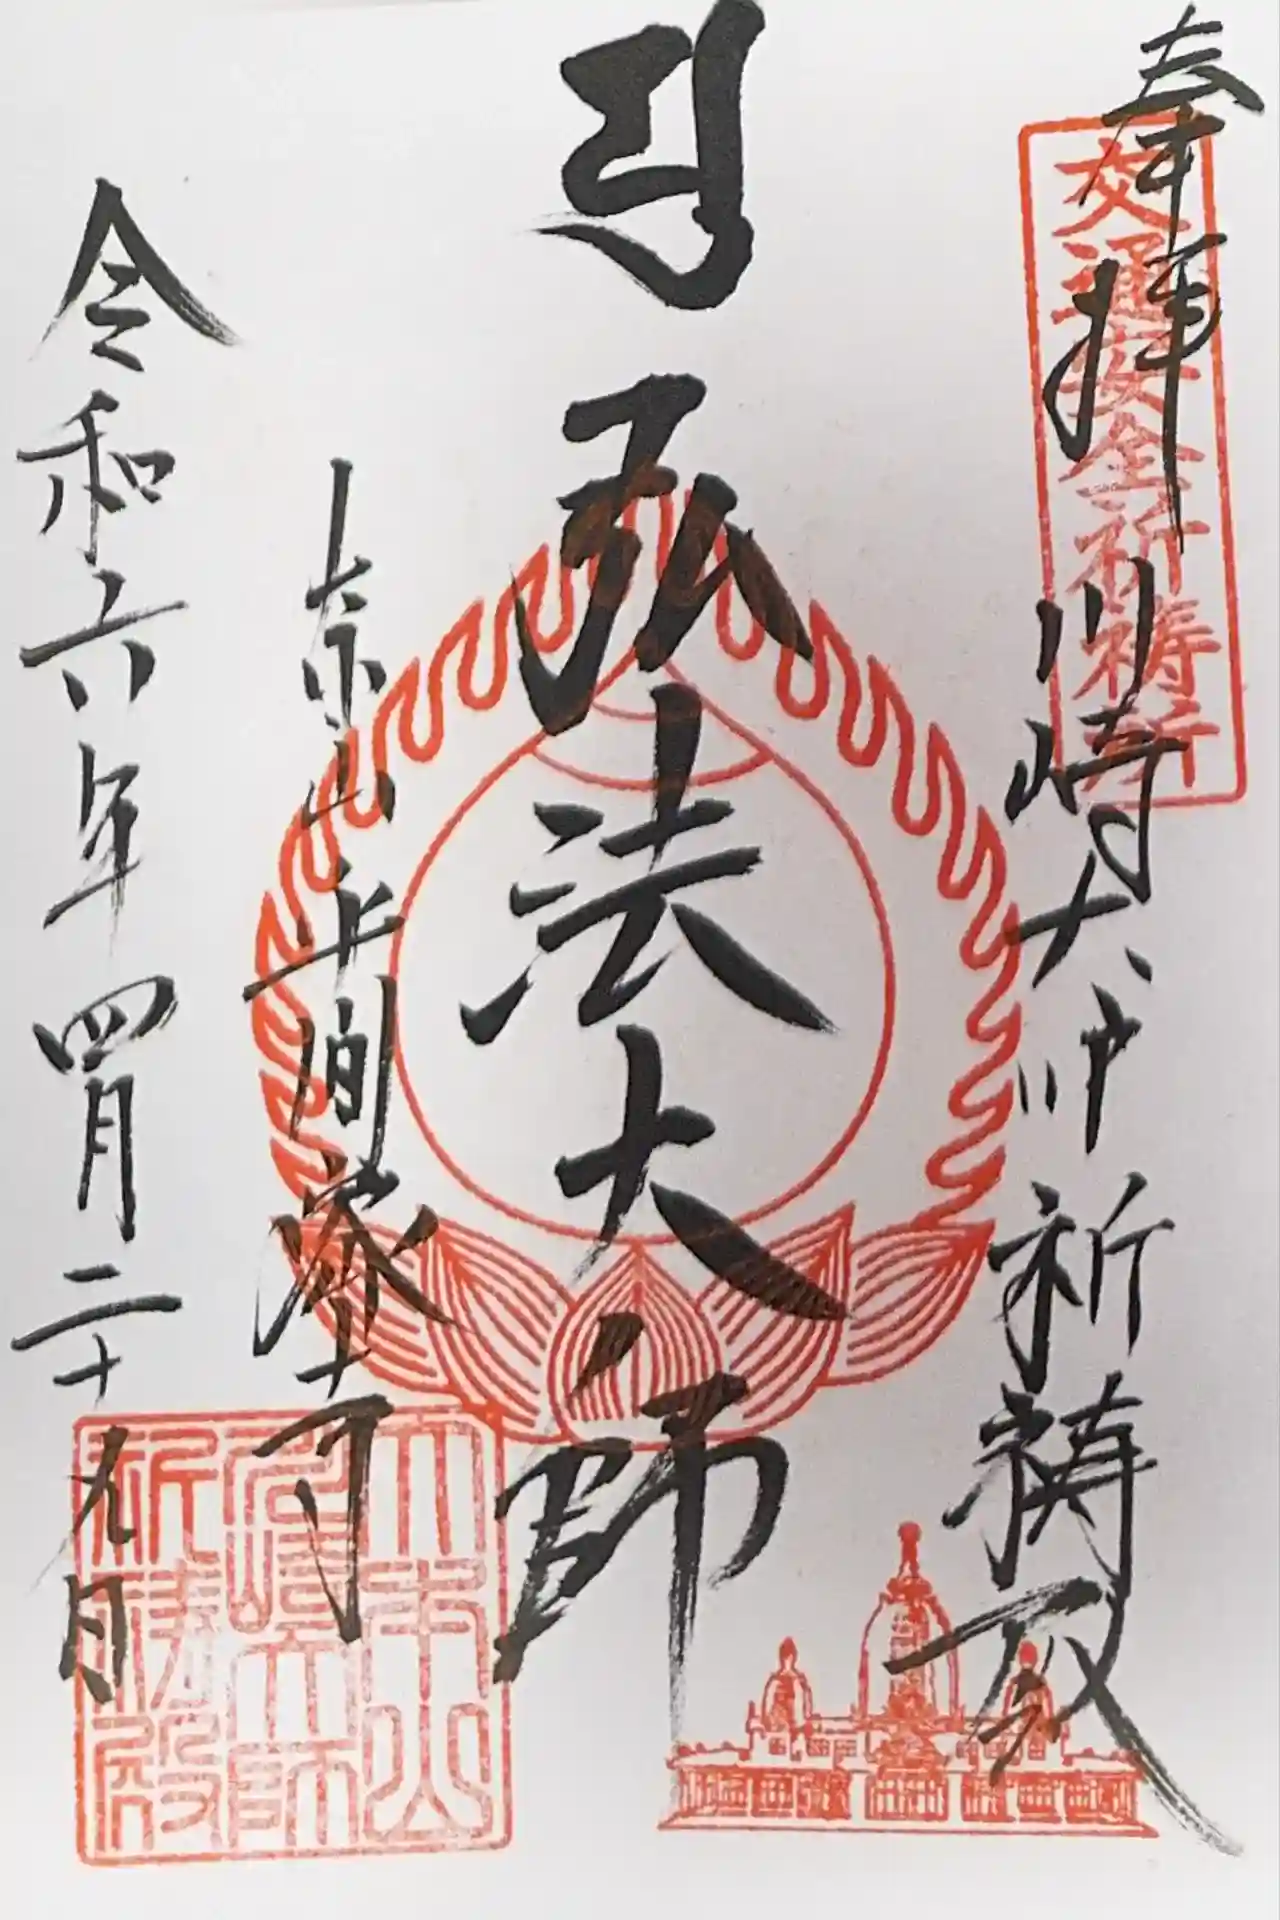 奉拝 川崎大師祈祷殿
交通安全祈祷所
弘法大師
大本山平間寺
令和六年四月二十九日
大本山
川崎大師
祈祷殿